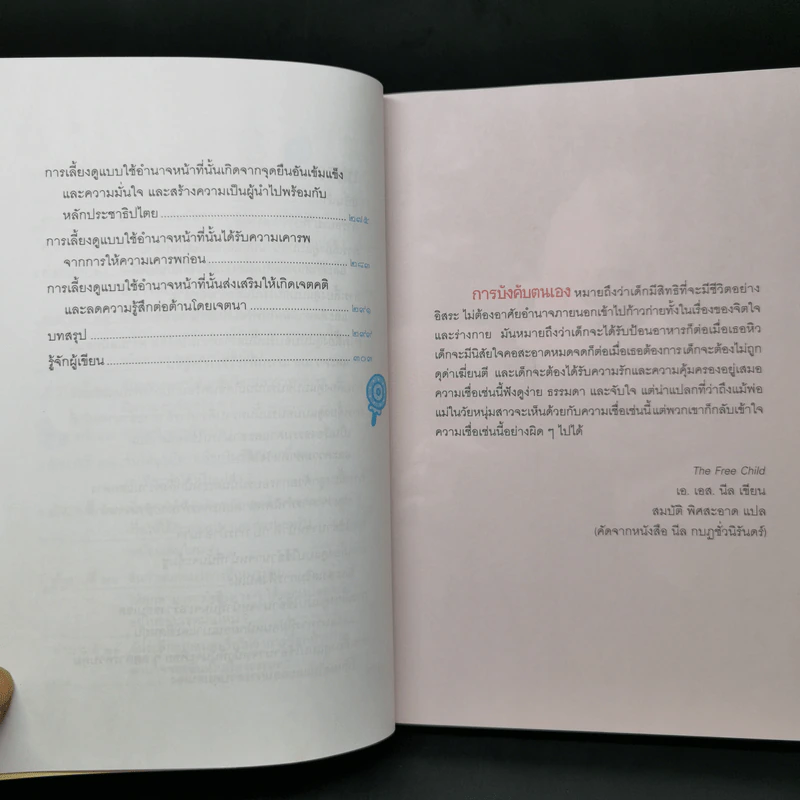 การเลี้ยงดูแบบใช้อำนาจหน้าที่นั้นเกิดจากจุดยืนอันเข้มแข็ง
และความมั่นใจ และสร้างความเป็นผู้นำไปพร้อมกับ
หลักประชาธิปไตย ๒๗๕
การเลี้ยงดูแบบใช้อำนาจหน้าที่นั้นได้รับความเคารพ
จากการให้ความเคารพก่อน ๒๘๑
การเลี้ยงดูแบบใช้อำนาจหน้าที่นั้นส่งเสริมให้เกิดเจตคติ
และลดความรู้สึกต่อต้านโดยเจตนา ๒๙๑
บทสรุป
รู้จักผู้เขียน ๓๐๓
การบังคับตนเอง หมายถึงว่าเด็กมีสิทธิที่จะมีชีวิตอย่าง
อิสระ ไม่ต้องอาศัยอำนาจภายนอกเข้าไปก้าวก่ายทั้งในเรื่องของจิตใจ
และร่างกาย มันหมายถึงว่าเด็กจะได้รับป้อนอาหารก็ต่อเมื่อเธอหิว
เด็กจะมีนิสัยใจคอสะอาดหมดจดก็ต่อเมื่อเธอต้องการ เด็กจะต้องไม่ถูก
ดุด่าเฆี่ยนตี และเด็กจะต้องได้รับความรักและความคุ้มครองอยู่เสมอ
ความเชื่อเช่นนี้ฟังดูง่าย ธรรมดา และจับใจ แต่น่าแปลกที่ว่าถึงแม้พ่อ
แม่ในวัยหนุ่มสาวจะเห็นด้วยกับความเชื่อเช่นนี้ แต่พวกเขาก็กลับเข้าใจ
ความเชื่อเช่นนี้อย่างผิด ๆ ไปได้
The Free Child
เอ. เอส. นีล เขียน
สมบัติ พิศสะอาด แปล
(คัดจากหนังสือ นีล กบฏชั่วนิรันดร์)